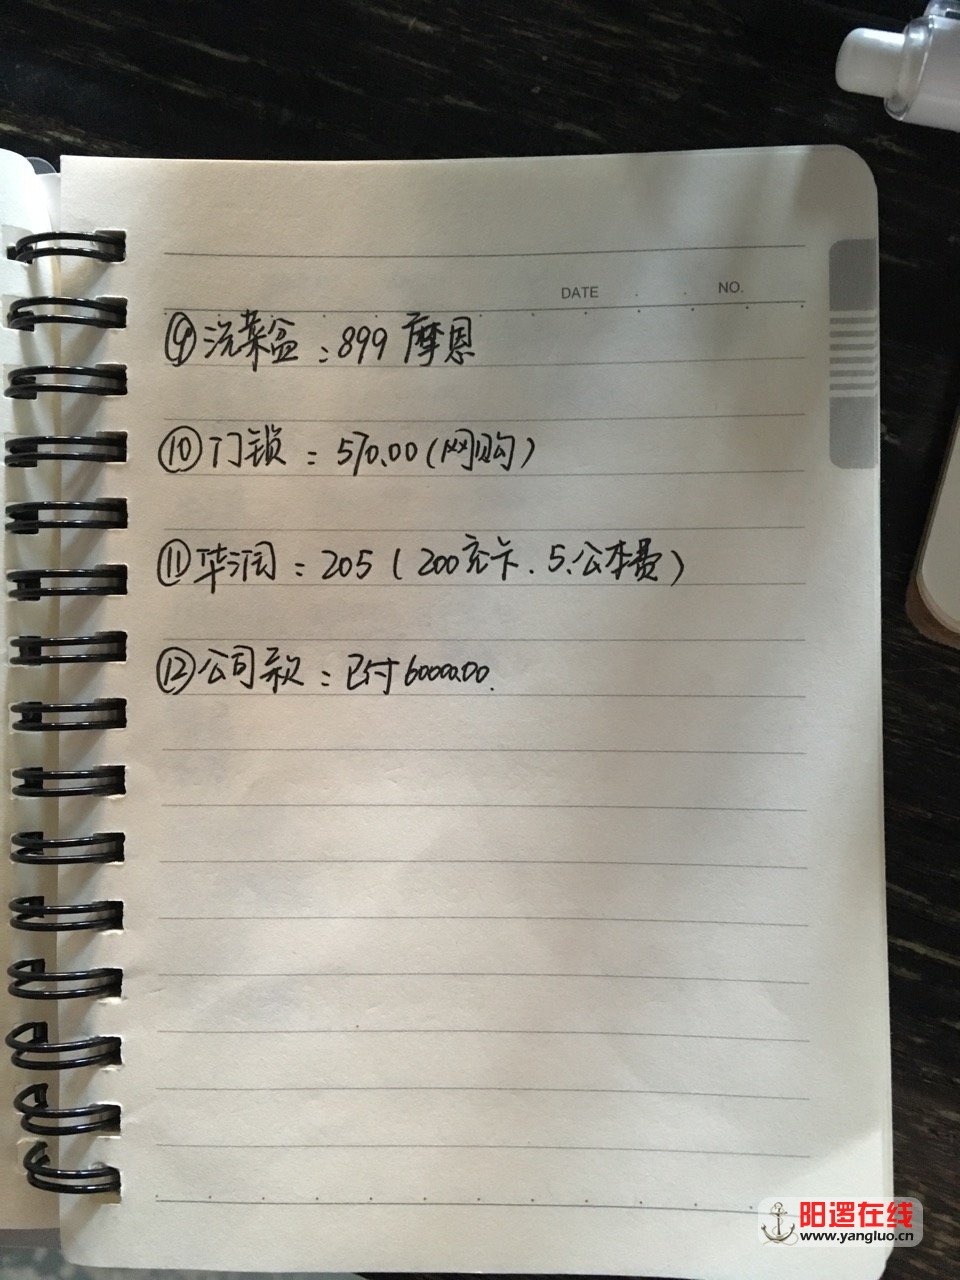 DATE NO.
⑨洗菜盆：899 摩恩
⑩门锁：570.00（网购）
⑪华润：205（200充卡.5.公本费）
⑫公司款：已付60000.00.
阳逻在线
www.yangluo.cn